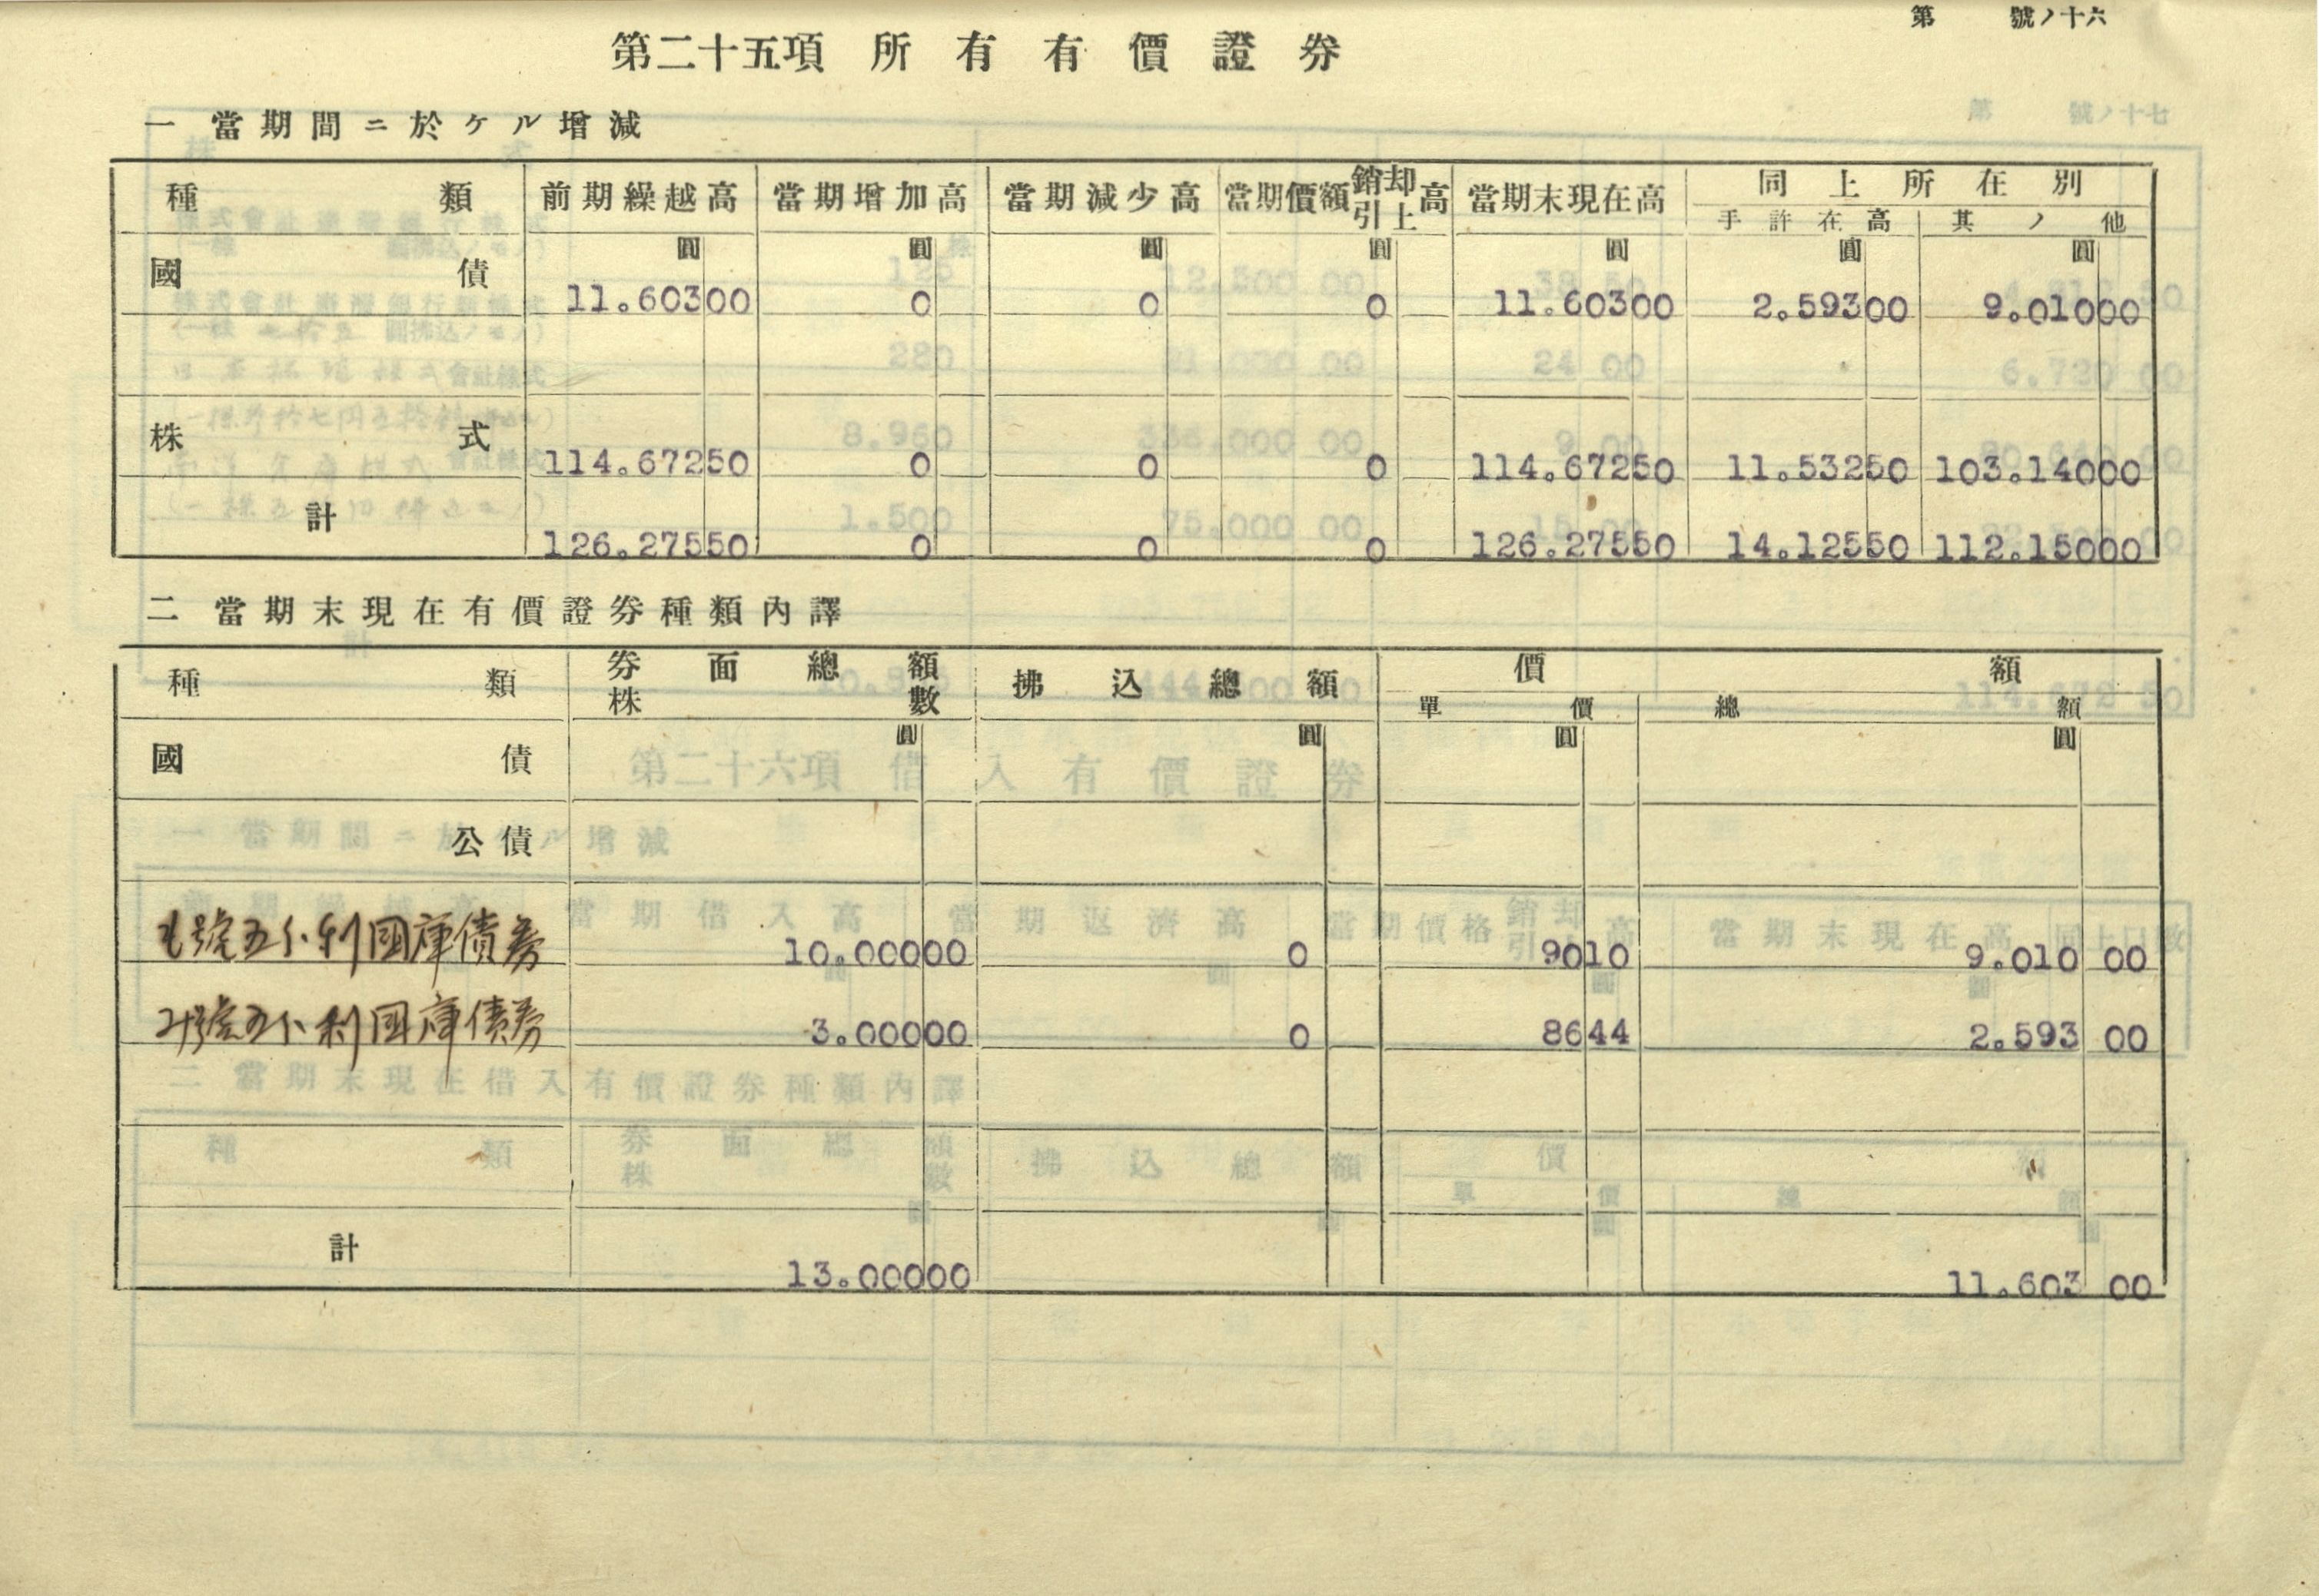 第 號ノ十六
第二十五項 所有有價證券
一 當期間ニ於ケル增減
種類 前期繰越高 當期增加高 當期減少高 當期價額銷却引上高 當期末現在高 同上所在別
手許在高 其ノ他
圓 圓 圓 圓 圓 圓 圓
國債 11.603 00 0 0 0 11.603 00 2.593 00 9.010 00
株式 114.672 50 0 0 0 114.672 50 11.532 50 103.140 00
計 126.275 50 0 0 0 126.275 50 14.125 50 112.150 00
二 當期末現在有價證券種類內譯
種類 券面總額 株數 拂込總額 價額
單價 總額
圓 圓 圓 圓
國債
公債
號五分利國庫債券 10.000 00 0 90 10 9.010 00
號五分利國庫債券 3.000 00 0 86 44 2.593 00
計 13.000 00 11.603 00